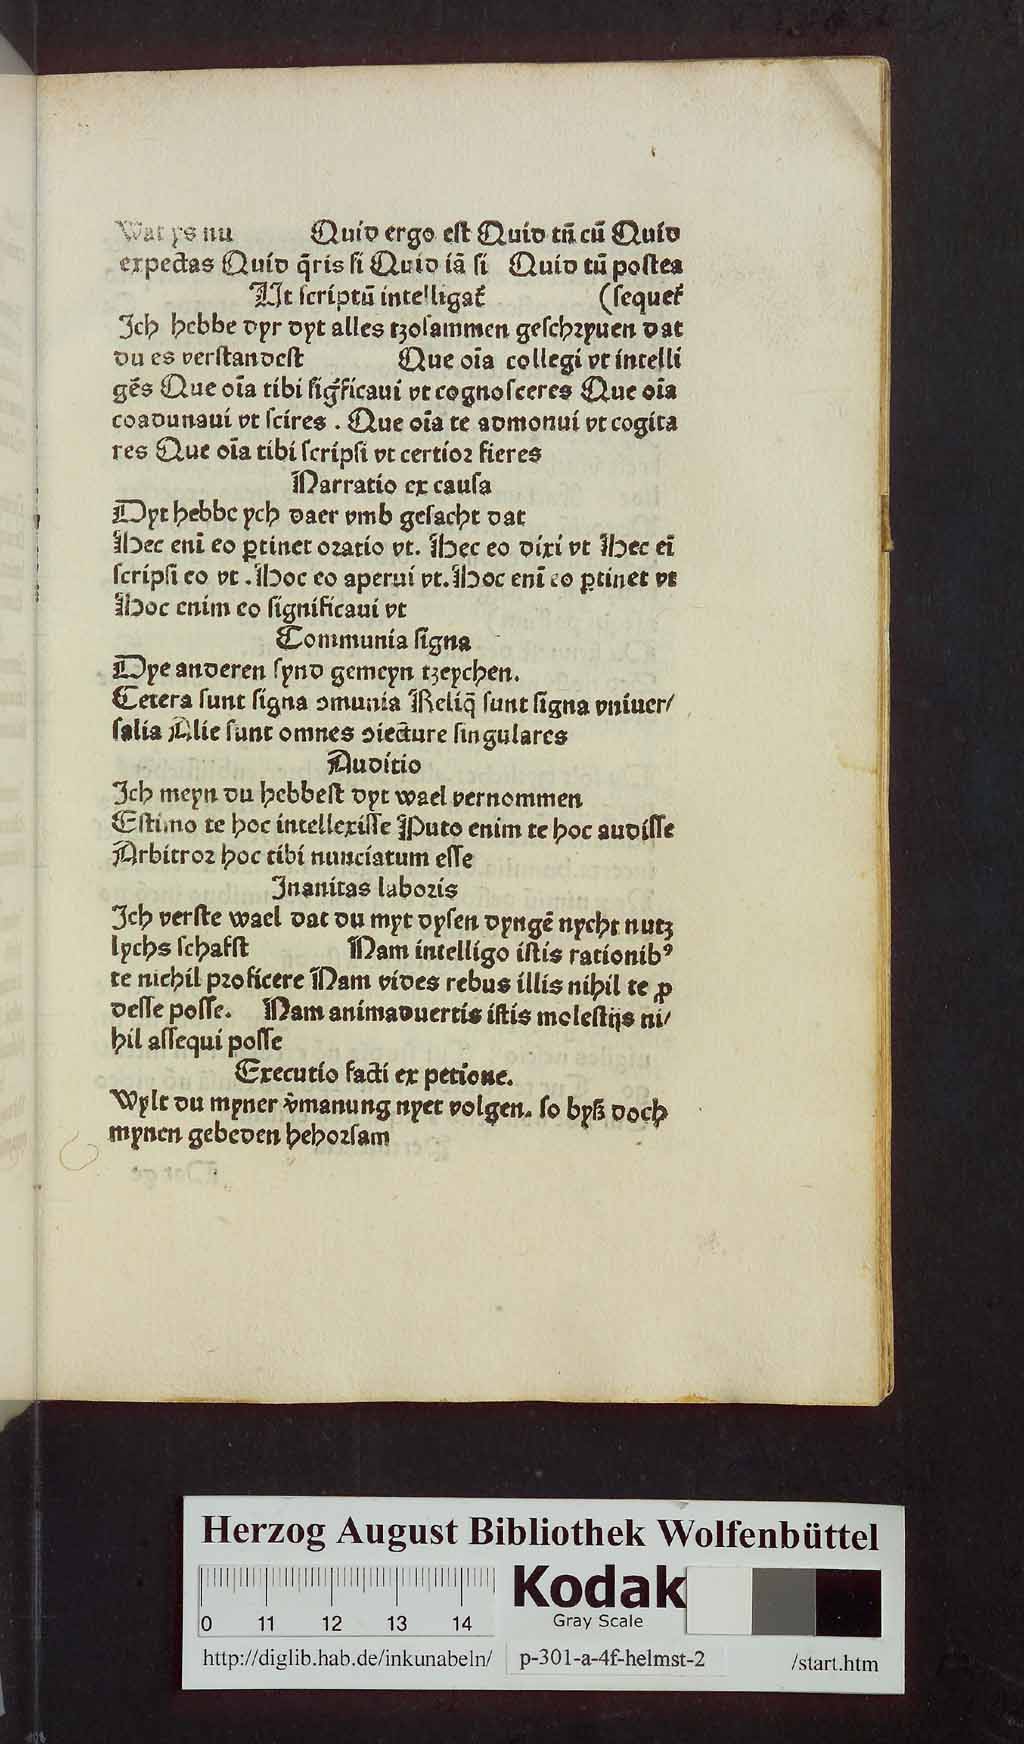 Wat ys nu Quid ergo est Quid tñ cũ Quid
expectas Quid q̃ris si Quid iã si Quid tũ postea
Ut scriptũ intelligat̃ (sequet̃
Jch hebbe dyr dyt alles tzosammen geschꝛyuen dat
du es verstandest Que oĩa collegi vt intelli
gẽs Que oĩa tibi sig̃ficaui vt cognosceres Que oĩa
coadunaui vt scires . Que oĩa te admonui vt cogita
res Que oĩa tibi scripsi vt certioꝛ fieres
Narratio ex causa
Dyt hebbe ych daer vmb gesacht dat
Hec enĩ eo ꝑtinet oꝛatio vt. Hec eo dixi vt Hec eĩ
scripsi eo vt . Hoc eo aperui vt. Hoc enĩ eo ꝑtinet vt
Hoc enim eo significaui vt
Communia signa
Dye anderen synd gemeyn tzeychen.
Cetera sunt signa ↄmunia Reliq̃ sunt signa vniuer/
salia Alie sunt omnes ↄiecture singulares
Auditio
Jch meyn du hebbest dyt wael vernommen
Estimo te hoc intellexisse Puto enim te hoc audisse
Arbitroꝛ hoc tibi nunciatum esse
Jnanitas laboꝛis
Jch verste wael dat du myt dysen dyngẽ nycht nutz
lychs schafst Nam intelligo istis rationibꝰ
te nichil pꝛoficere Nam vides rebus illis nihil te ꝓ
desse posse. Nam animaduertis istis molestijs ni/
hil assequi posse
Executio facti ex petione.
Wylt du myner v̓manung nyet volgen. so byß doch
mynen gebeden hehoꝛsam
Herzog August Bibliothek Wolfenbüttel
0 11 12 13 14
Kodak
Gray Scale
http://diglib.hab.de/inkunabeln/ p-301-a-4f-helmst-2 /start.htm